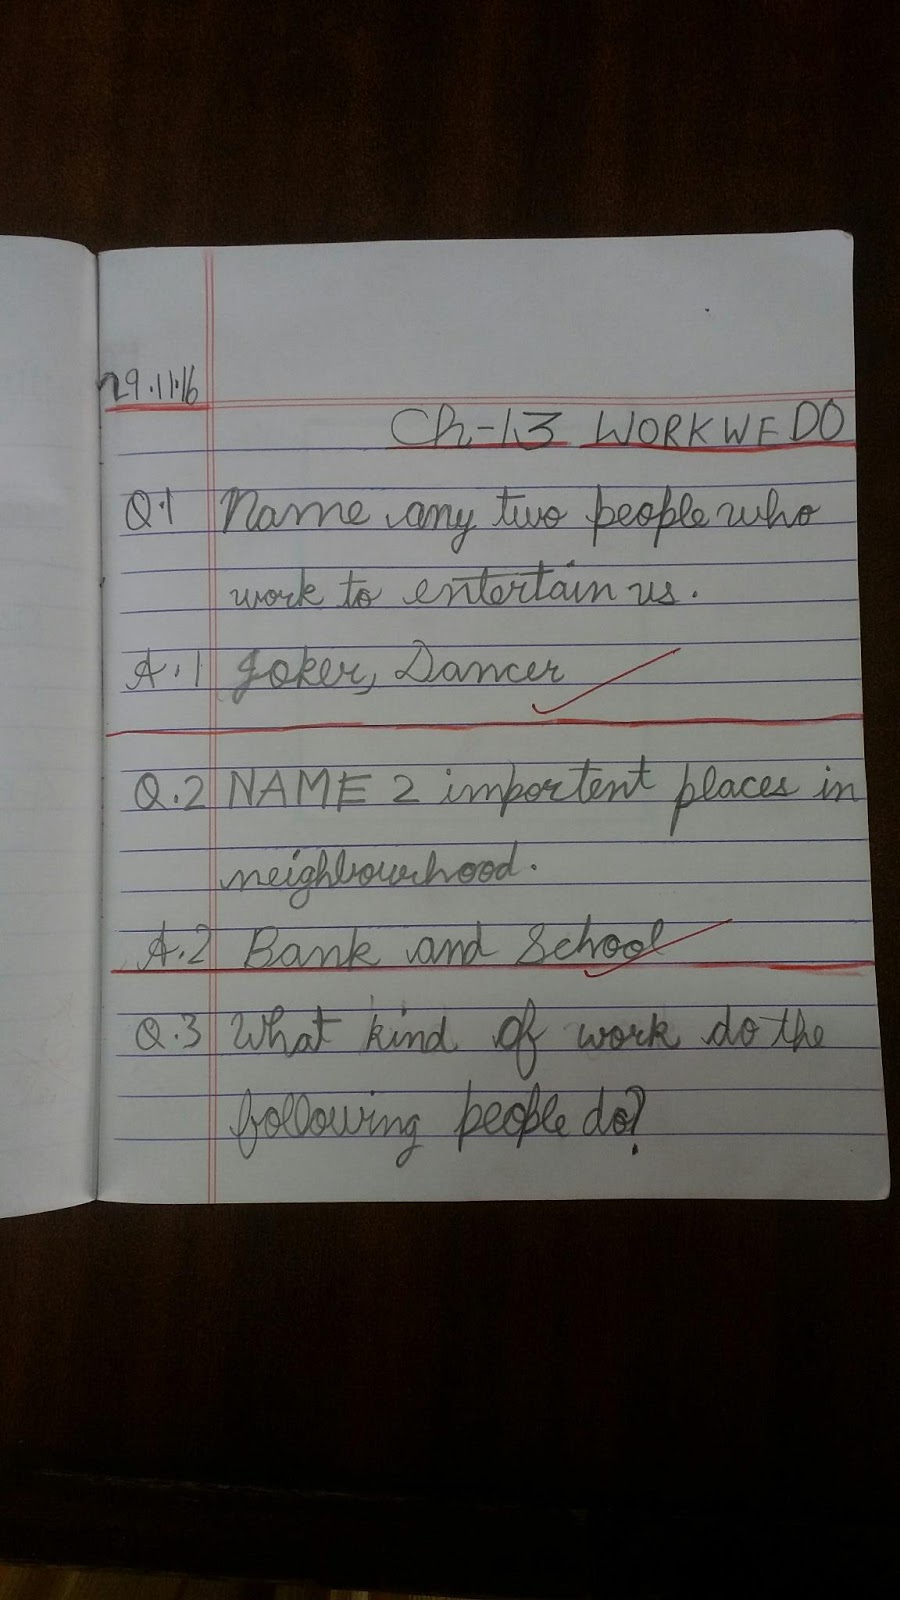 29.11.16
Ch-13 WORK WE DO
Q.1 Name any two people who
work to entertain us.
A.1 Joker, Dancer
Q.2 NAME 2 importent places in
neighbourhood.
A.2 Bank and School
Q.3 What kind of work do the
following people do?